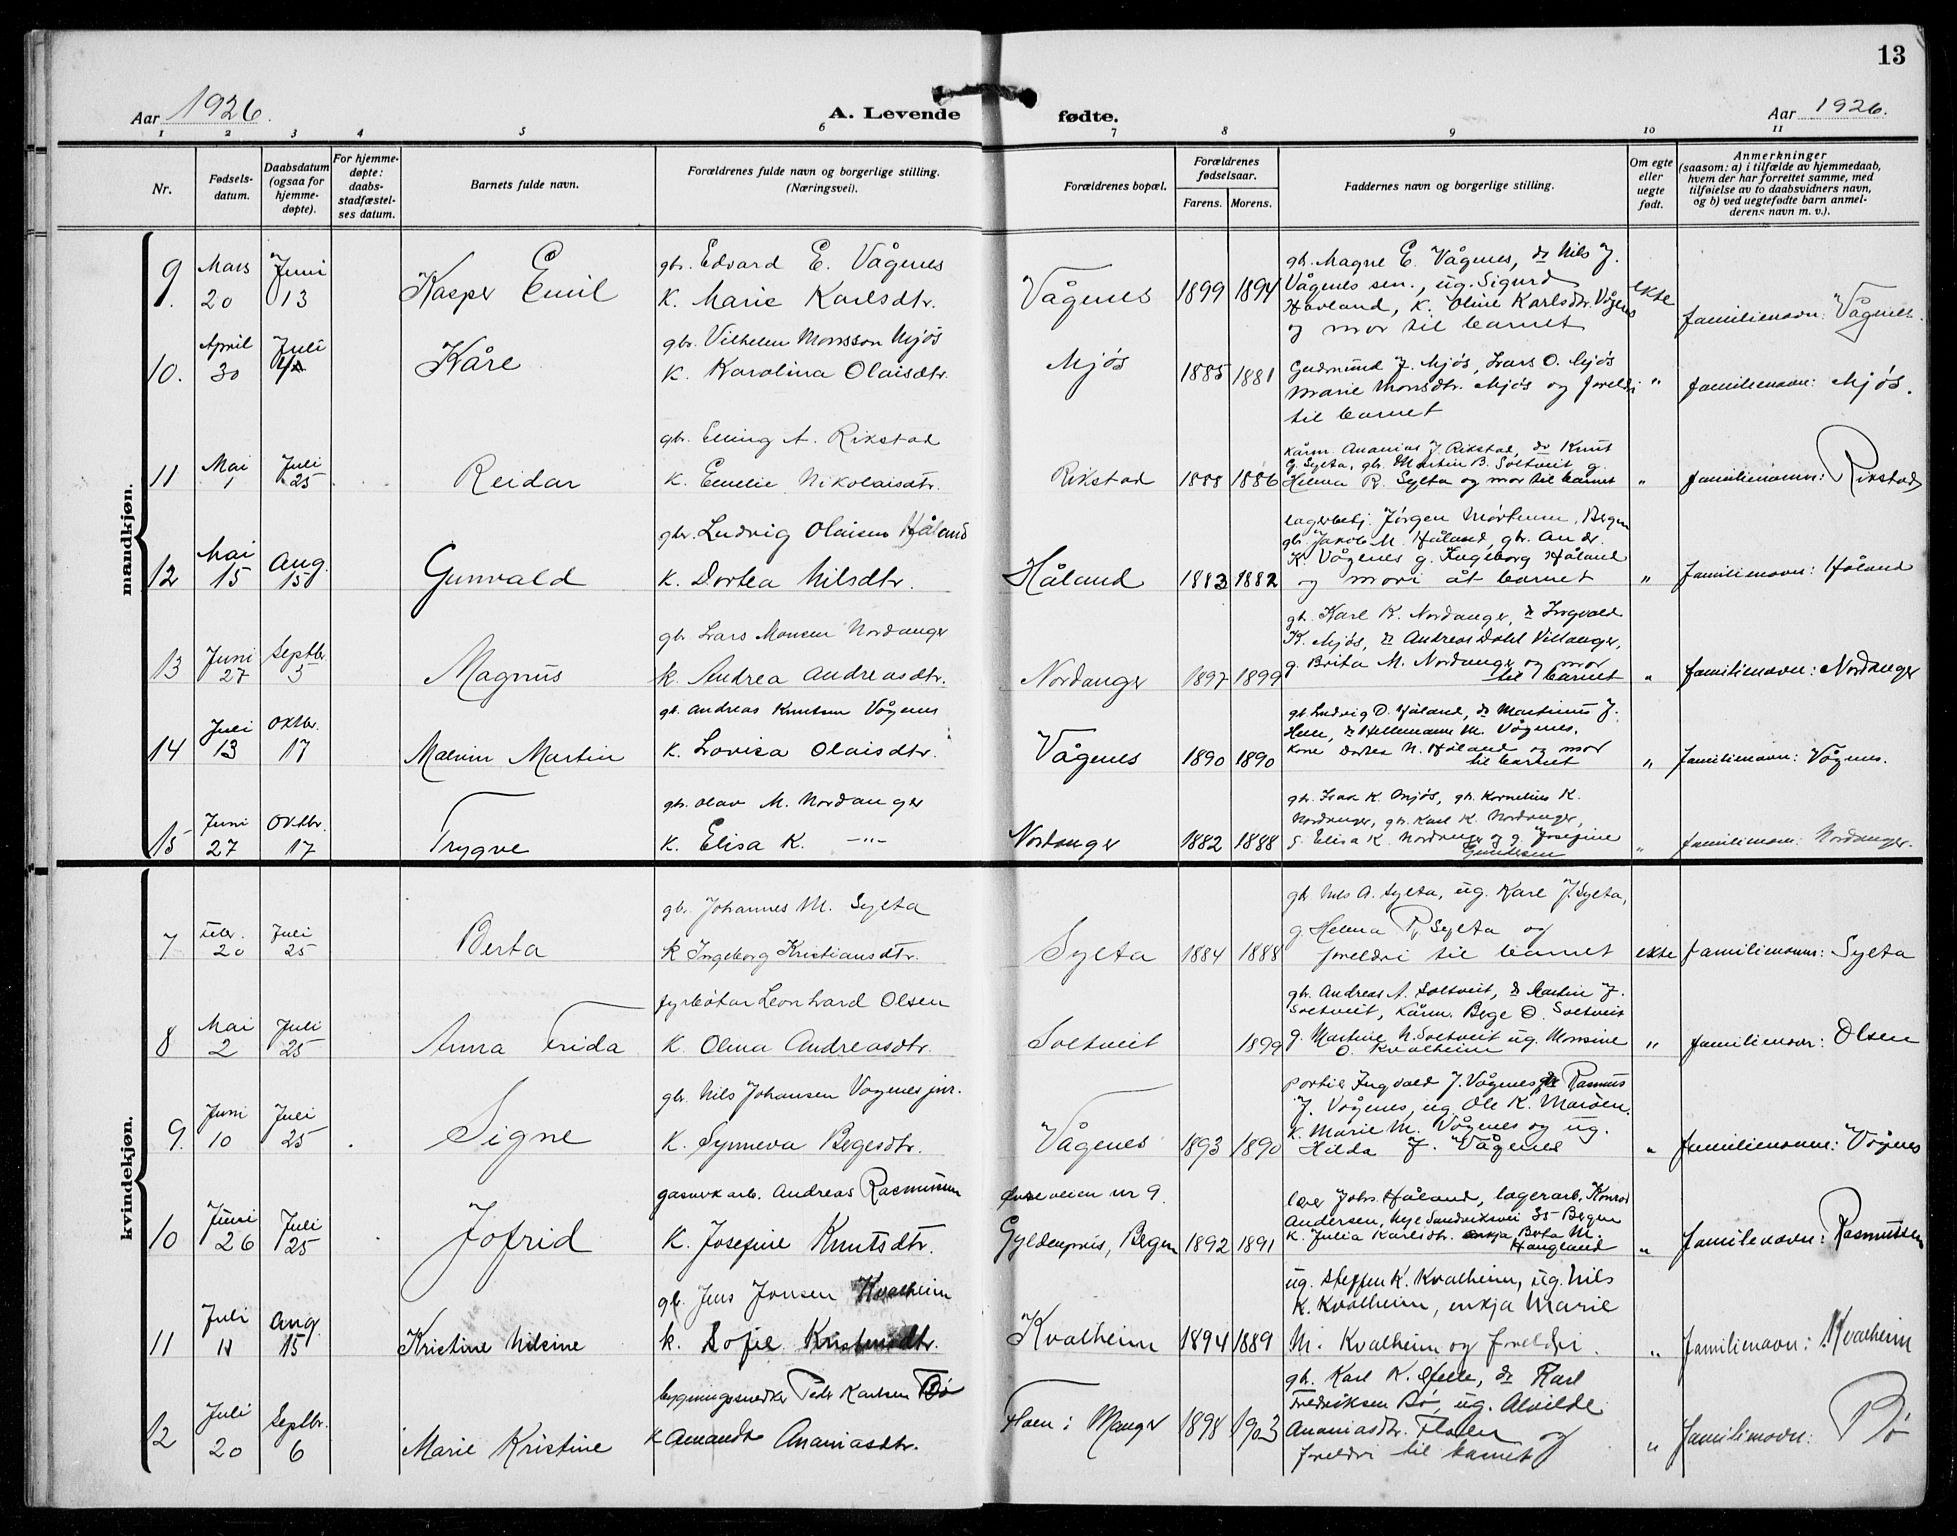 13
Aar 1926.
A. Levende fødte.
Aar 1926.
1 2 3 4 5 6 7 8 9 10 11
Nr.
Fødsels-
datum.
Daabsdatum
(ogsaa for
hjemme-
døpte).
For hjemme-
døpte:
daabs-
stadfæstel-
ses datum.
Barnets fulde navn.
Forældrenes fulde navn og borgerlige stilling.
(Næringsvei).
Forældrenes bopæl.
Forældrenes
fødselsaar.
Farens. Morens.
Faddernes navn og borgerlige stilling.
Om egte
eller
uegte
født.
Anmerkninger
(saasom: a) i tilfælde av hjemmedaab,
hvem der har forrettet samme, med
tilføielse av to daabsvidners navn,
og b) ved uegtefødte barn anmel-
derens navn m. v.).
mandkjøn.
9. Mars 20 Juni 13
Kasper Emil
gbr. Edvard E. Vågenes
K. Marie Karlsdtr.
Vågenes
1899 1894
gb. Magne E. Vågenes, dr Nils J.
Vågenes sen., ug. Sigurd
Havland, K. Oline Karlsdtr. Vågenes
og mor til barnet
ekte
familienavn: Vågnes.
10. April 30 Juli
Kåre
gbr. Vilhelm Monsson Mjøs
K. Karolina Olaisdtr.
Mjøs
1885 1881
Gudmund J. Mjøs, Lars O. Mjøs
Marie Monsdtr. Mjøs og foreldri
til barnet
"
familienavn: Mjøs.
11 Mai 1 Juli 25
Reidar
gbr. Elling A. Rikstad
K. Emelie Nikolaisdtr.
Rikstad
1888 1886
kårm. Ananias J. Rikstad, dr Knut
G. Sylta, gbr. Martin B. Soltveit g.
Helena R. Sylta og mor til barnet
"
familienamn: Rikstad
12 Mai 15 Aug. 15
Gunvald
gbr. Ludvig Olaisen Håland
K. Dortea Nilsdtr.
Håland
1883 1882
lagerbetj. Jørgen Mortensen, Bergen
gb. Jakob M. Håland, gbr. Andr.
K. Vågenes g. Ingeborg Håland
og mori åt barnet
"
familienavn: Håland
13 Juni 27 Septbr 5
Magnus
gbr Lars Monsen Nordanger
k. Andrea Andreasdtr.
Nordanger
1897 1899
gb. Karl K. Nordanger, dr Ingvald
K. Mjøs, dr Andreas Dahl Villanger,
g. Brita M. Nordanger og mor
til barnet
"
familienavn: Nordanger
14 Juli 13 Oktbr. 17
Malvin Martin
gb. Andreas Knutsen Vågenes
K. Lovisa Olaisdtr.
Vågenes
1890 1890
gb. Ludvig O. Håland, dr Martinus J.
Helle, dr Hellemann M. Vågenes,
Kone Dortea N. Håland og mor
til barnet
"
familienavn: Vågnes.
15 Juni 27 Oktbr. 17
Trygve
gbr. Olav M. Nordanger
K. Elisa K. —"—
Nordanger
1882 1888
gbr. Isak K. Mjøs, gb. Kornelius K.
Nordanger, gb. Karl K. Nordanger,
g. Elisa K. Nordanger og g. Josefine
Gundersen
"
familienavn: Nordanger.
kvindekjøn.
7 Febr. 20 Juli 25
Berta
gbr. Johannes M. Sylta
k Ingeborg Kristiansdtr.
Sylta
1884 1888
gbr Nils A. Sylta, ug. Karl J. Sylta,
g. Helena R. Sylta og
foreldri til barnet
ekte
familienamn: Sylta
8 Mai 2 Juli 25
Anna Frida
fyrbøtar Leonhard Olsen
K. Olina Andreasdtr.
Soltveit
1899
gbr. Andreas A. Soltveit, dr Martin J.
Soltveit, Kårm. Berge O. Soltveit
g. Martine N. Soltveit ug. Monsine
O. Kvalheim
"
familienavn: Olsen
9. Juni 10 Juli 25
Signe
gbr. Nils Johansen Vågenes jnr.
K. Synneva Bergesdtr.
Vågenes
1893 1890
Portie Ingvald J. Vågenes, dr Rasmus
J. Vågenes, ug. Ole K. Marøen.
k. Marie M. Vågenes og ug.
Hilda J. Vågenes
"
familienavn: Vågnes
10 Juni 26 Juli 25
Jofrid
gasverkarb. Andreas Rasmussen
K. Josefine Knutsdtr.
veien nr 9.
Gyldenpris, Bergen
1892 1891
lær Johs. Håland, lagerarb. Konrad
Andersen, Nye Sandviksvei 35 Bergen
K. Julia Karlsdtr. enkja Berta M.
Haugland
"
familienavn: Rasmussen
11 Juli 11 Aug. 15
Kristine Nilsine
gb. Jens Jonsen Kvalheim
k. Sofie Kristensdtr.
Kvalheim
1894 1889
ug. Steffen K. Kvalheim, ug. Nils
K. Kvalheim, enkja Marie
M. Kvalheim og foreldri.
"
familienavn: Kvalheim
12 Juli 20 Septbr. 6
Marie Kristine
bygningssnedker Peder Karlsen Bø
k Amanda Ananiasdtr.
Floen i Manger
1898 1903
gb. Karl K. Helle, dr Karl
Fredriksen Bø, ug. Alvilde
Ananiasdtr. Floen og
foreldri til barnet
"
familienavn: Bø